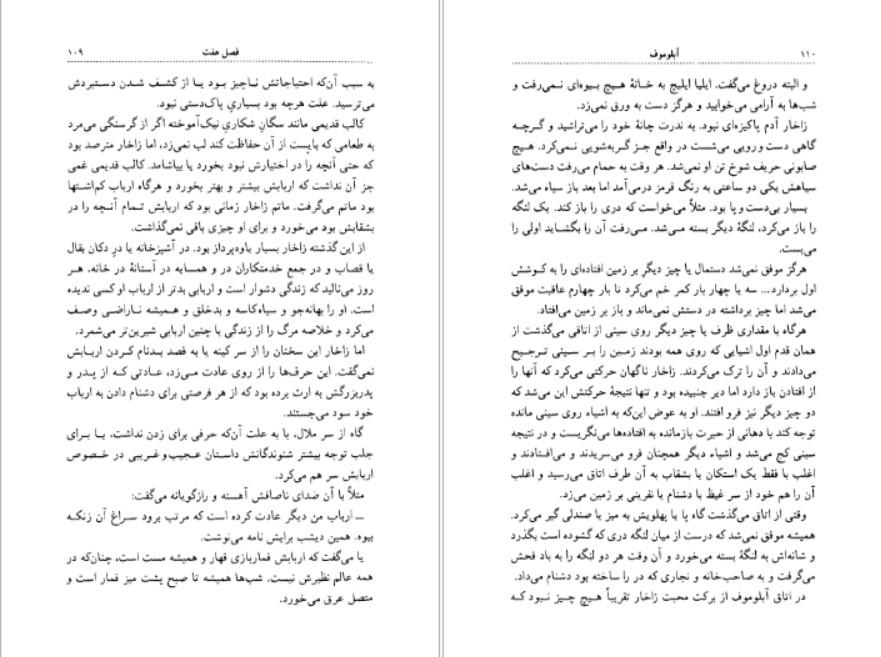 فصل هفت
۱۰۹
به سبب آن‌که احتیاجاتش ناچیز بود یا از کشف شدن دستبردش
می‌ترسید. علت هرچه بود بسیاریِ پاک‌دستی نبود.
کالب قدیمی مانند سگانِ شکاریِ نیک‌آموخته اگر از گرسنگی می‌مرد
به طعامی که بایست از آن حفاظت کند لب نمی‌زد، اما زاخار مترصد بود
که حتی آنچه را در اختیارش نبود بخورد یا بیاشامد. کالب قدیمی غمی
جز آن نداشت که اربابش بیشتر و بهتر بخورد و هرگاه ارباب کم‌اشتها
بود ماتم می‌گرفت. ماتم زاخار زمانی بود که اربابش تمام آنچه را در
بشقابش بود می‌خورد و برای او چیزی باقی نمی‌گذاشت.
از این گذشته زاخار بسیار یاوه‌پرداز بود. در آشپزخانه یا در دکان بقال
یا قصاب و در جمع خدمتکاران در و همسایه در آستانهٔ در خانه، هر
روز می‌نالید که زندگی دشوار است و اربابی بدتر از ارباب او کسی ندیده
است. او را بهانه‌جو و سیاه‌کاسه و بدخلق و همیشه ناراضی وصف
می‌کرد و خلاصه مرگ را از زندگی با چنین اربابی شیرین‌تر می‌شمرد.
اما زاخار این سخنان را از سر کینه یا به قصد بدنام کردن اربابش
نمی‌گفت. این حرف‌ها را از روی عادت می‌زد، عادتی که از پدر و
پدربزرگش به ارث برده بود که از هر فرصتی برای دشنام دادن به ارباب
خود سود می‌جستند.
گاه از سر ملال، یا به علت آن‌که حرفی برای زدن نداشت، یا برای
جلب توجه بیشتر شنوندگانش داستان عجیب‌وغریبی در خصوص
اربابش سر هم می‌کرد.
مثلاً با آن صدای ناصافش آهسته و رازگویانه می‌گفت:
ــ ارباب من دیگر عادت کرده است که مرتب برود سراغ آن زنکه
بیوه. همین دیشب برایش نامه می‌نوشت.
یا می‌گفت که اربابش قماربازی قهار و همیشه مست است، چنان‌که در
همه عالم نظیرش نیست. شب‌ها همیشه تا صبح پشت میز قمار است و
متصل عرق می‌خورد.
۱۱۰
آبلوموف
و البته دروغ می‌گفت. ایلیا ایلیچ به خانهٔ هیچ بیوه‌ای نمی‌رفت و
شب‌ها به آرامی می‌خوابید و هرگز دست به ورق نمی‌زد.
زاخار آدم پاکیزه‌ای نبود. به ندرت چانهٔ خود را می‌تراشید و گرچه
گاهی دست و رویی می‌شست در واقع جز گربه‌شویی نمی‌کرد. هیچ
صابونی حریف شوخ تن او نمی‌شد. هر وقت به حمام می‌رفت دست‌های
سیاهش یکی دو ساعتی به رنگ قرمز درمی‌آمد اما بعد باز سیاه می‌شد.
بسیار بی‌دست‌وپا بود. مثلاً می‌خواست که دری را باز کند. یک لنگه
را باز می‌کرد، لنگهٔ دیگر بسته می‌شد. می‌رفت آن را بگشاید اولی را
می‌بست.
هرگز موفق نمی‌شد دستمال یا چیز دیگرِ بر زمین افتاده‌ای را به کوشش
اول بردارد... سه یا چهار بار کمر خم می‌کرد تا بار چهارم عاقبت موفق
می‌شد اما چیز برداشته در دستش نمی‌ماند و باز بر زمین می‌افتاد.
هرگاه با مقداری ظرف یا چیز دیگر روی سینی از اتاقی می‌گذشت از
همان قدم اول اشیایی که روی همه بودند زمین را بر سینی ترجیح
می‌دادند و آن را ترک می‌کردند. زاخار ناگهان حرکتی می‌کرد که آنها را
از افتادن باز دارد اما دیر جنبیده بود و تنها نتیجهٔ حرکتش این می‌شد که
دو چیز دیگر نیز فرو افتند. او به عوض این‌که به اشیاء روی سینی مانده
توجه کند با دهانی از حیرت بازمانده به افتاده‌ها می‌نگریست و در نتیجه
سینی کج می‌شد و اشیاء دیگر همچنان فرو می‌سریدند و می‌افتادند و
اغلب با فقط یک استکان یا بشقاب به آن طرف اتاق می‌رسید و اغلب
آن را هم خود از سر غیظ با دشنام یا نفرینی بر زمین می‌زد.
وقتی از اتاق می‌گذشت گاه پا یا پهلویش به میز یا صندلی گیر می‌کرد.
همیشه موفق نمی‌شد که درست از میان لنگه دری که گشوده است بگذرد
و شانه‌اش به لنگهٔ بسته می‌خورد و آن وقت هر دو لنگه را به باد فحش
می‌گرفت و به صاحب‌خانه و نجاری که در را ساخته بود دشنام می‌داد.
در اتاق آبلوموف از برکت محبت زاخار تقریباً هیچ چیز نبود که